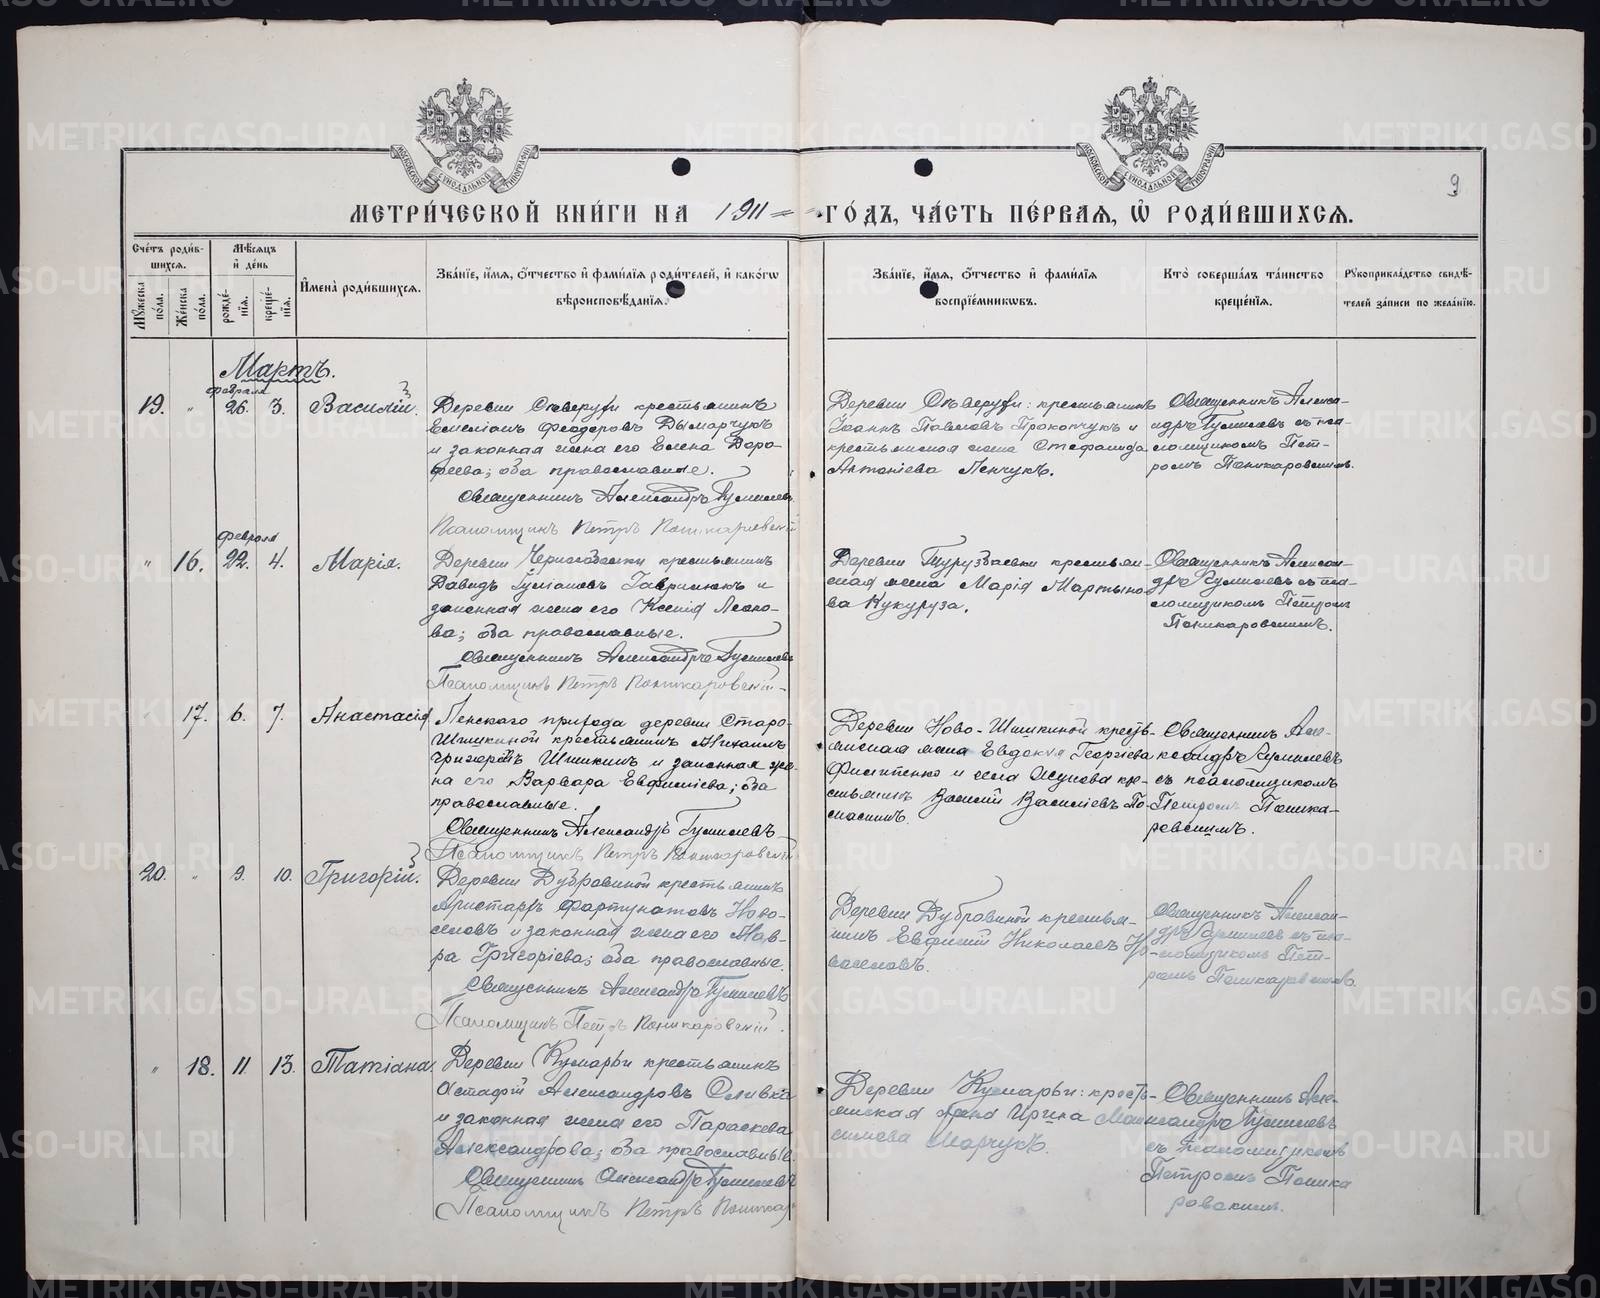 МОСКОВСКОЙ СУНОДАЛЬНОЙ ТИПОГРАФІИ
МОСКОВСКОЙ СУНОДАЛЬНОЙ ТИПОГРАФІИ
9
МЕТРИ́ЧЕСКОЙ КНИ́ГИ НА 1911 ГО́ДЪ, ЧА́СТЬ ПЕ́РВАЯ, Ѡ РОДИ́ВШИХСЯ.
Сче́тъ роди́в-
шихся.
Му́жеска по́ла.
Же́нска по́ла.
Мѣ́сяцъ
и҆ де́нь
рожде́-
нїя.
креще́-
нїя.
И҆мена̀ роди́вшихся.
Зва́нїе, и҆́мя, ѻ҆́тчество и҆ фами́лїя роди́телей, и҆ како́гѡ
вѣроисповѣ́данїя.
Зва́нїе, и҆́мя, ѻ҆́тчество и҆ фами́лїя
воспрїе́мникѡвъ.
Кто̀ соверша́лъ та́инство
креще́нїя.
Рукоприкла́дство свидѣ́-
телей за́писи по жела́нїю.
Мартъ.
19. " февраля 26. 3. Василій.
Деревни крестьянинъ
Емеліанъ Феодоровъ Дымарчукъ
и законная жена его Елена Доро-
феева; оба православные.
Священникъ Александръ Гумилевъ
Псаломщикъ Петръ Поникаровскій
Деревни крестьянинъ
Іоаннъ Павловъ Прокопчукъ и
крестьянская жена Стефанида
Антоніева Ленчукъ.
Священникъ Алекса-
ндръ Гумилевъ съ пса-
ломщикомъ Пет-
ромъ Поникаровскимъ.
" 16. февраля 22. 4. Марія.
Деревни крестьянинъ
Давидъ Гаврилюкъ и
законная жена его Ксенія Леон-
ва; оба православные.
Священникъ Александръ Гумилевъ
Псаломщикъ Петръ Поникаровскій
Деревни крестьян-
ская жена Марія Мартыно-
ва Кукуруза.
Священникъ Алексан-
дръ Гумилевъ съ пса-
ломщикомъ Петромъ
Поникаровскимъ.
" 17. 6. 7. Анастасія
Ленскаго прихода деревни Старо-
Шишкиной крестьянинъ Михаилъ
Григорьевъ Шишкинъ и законная же-
на его Варвара Евфиміева; оба
православные.
Священникъ Александръ Гумилевъ
Псаломщикъ Петръ Поникаровскій
Деревни Ново-Шишкиной кресть-
янская жена Евдокія Георгіева
Филипенко и села кре-
стьянинъ Василій Василіевъ По-
Священникъ Але-
ксандръ Гумилевъ
съ псаломщикомъ
Петромъ Поника-
ровскимъ.
20. " 9. 10. Григорій.
Деревни Дубровиной крестьянинъ
Аристархъ Фортунатовъ Ново-
селовъ и законная жена его Мав-
ра Григоріева; оба православные.
Священникъ Александръ Гумилевъ
Псаломщикъ Петръ Поникаровскій.
Деревни Дубровиной крестья-
нинъ Евфимій Николаевъ Но-
воселовъ.
Священникъ Алексан-
дръ Гумилевъ съ пса-
ломщикомъ Пет-
ромъ Поникаровскимъ.
" 18. 11. 13. Татіана.
Деревни Кумарьи крестьянинъ
Астафій Александровъ Сливка
и законная жена его Параскева
Александрова; оба православные.
Священникъ Александръ Гумилевъ
Псаломщикъ Петръ Поникар
Деревни Кумарьи: кресть-
янская жена Ирина Мак-
симова Марчукъ.
Священникъ Алек-
сандръ Гумилевъ
съ псаломщикомъ
Петромъ Поника
ровскимъ.
METRIKI.GASO-URAL.RU